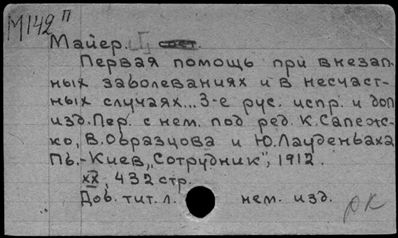 М142 П
Майер. Г. сост.
Первая помощь при внезап-
ных заболеваниях и в несчаст-
ных случаях... 3-е рус. испр. и доп
изд. Пер. с нем. под ред. К. Сапежс-
ко, В. Образцова и Ю. Лауденбаха
Пб.-Киев, „Сотрудник", 1912.
XX, 432 стр.
Доб. тит. л. нем. изд.